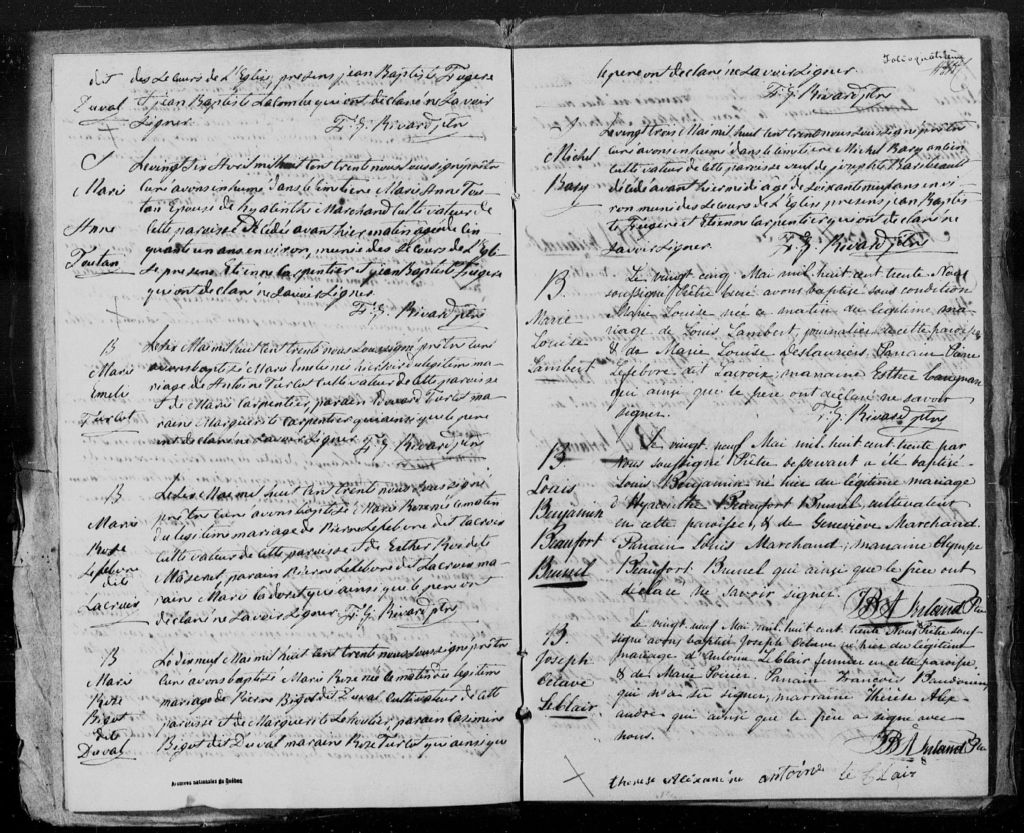 dit
Duval
des Secours de l'Eglise, presens jean Baptiste Frigere
et jean Baptiste Lacombe qui ont déclaré ne Savoir
Signer. F. X. Rivard ptre
S
Marie
Anne
Toutan
Le vingt Six Avril mil huit cent trent nous Sousigné prêtre
curé avons enhumé dans le cimitiere Marie Anne Tou-
tan Epouse de hyacinthe Marchand cultivateur de
cette paroisse décédés avant hier matin agée de Cin
quante un ans environ, munie des Secours de l'Egli-
se presens Etienne Carpentier et jean Baptiste Frigere
qui ont déclaré ne Savoir Signer
F. X. Rivard ptre
B
Marie
Emelie
Turcot
Le Six Mai mil huit cent trent nous Sousigné prêtre curé
avons baptisé Marie Emelie née hier soir du legitime ma-
riage de Antoine Turcot cultivateur de cette paroisse
et de Marie Carpentier, parain Edouard Turcot ma-
raine Marguerite Carpentier qui ainsi que le pere
ont déclaré ne Savoir Signer F. X. Rivard ptre
B
Marie
Rose
Lefebvre
dit
Lacroix
Le dix Mai mil huit cent trent nous Sousigné
prêtre curé avons baptisé Marie Rose née ce matin
du legitime mariage de Pierre Lefebvre dit Lacroix
cultivateur de cette paroisse et de Esther Rivard dite
parain Pierre Lefebvre dit Lacroix ma-
raine Marie qui ainsi que le pere ont
déclaré ne Savoir Signer F. X. Rivard ptre
B
Marie
Rose
Bigot
dit
Duval
Le dix neuf Mai mil huit cent trent nous Sousigné prêtre
curé avons baptisé Marie Rose née ce matin du legitime
mariage de Pierre Bigot dit Duval cultivateur de cette
paroisse et de Marguerite parain Casimire
Bigot dit Duval maraine Rose Turcot qui ainsi que
Archives nationales du Québec
Folio quatrième
le pere ont déclaré ne Savoir Signer.
F. X. Rivard ptre
S
Michel
Basy
Le vingt trois Mai mil huit cent trent nous Sousigné prêtre
curé avons enhumé dans le cimitiere Michel Basy ancien
cultivateur de cette paroisse veuf de josephte Baribeault
décédé avant hier midi agé de Soixante neuf ans envi
ron muni des Secours de l'Eglise presens jean Baptis
te Frigere et Etienne Carpentier qui ont déclaré ne
Savoir Signer. F. X. Rivard ptre
B.
Marie
Louise
Lambert
Le vingt cinq Mai mil huit cent trente Nous
soussigné Prêtre Curé avons baptisé sous condition
Marie Louise née ce matin du légitime ma-
riage de Louis Lambert, journalier de cette paroisse
& de Marie Louise Deslauriers. Parrain Pierre
Lefebvre dit Lacroix; marraine Esther Carignan
qui ainsi que le père ont déclaré ne savoir
signer. F. X. Rivard ptre
B
Louis
Benjamin
Beaufort
Brunel
Le vingt-neuf Mai mil huit cent trente par
Nous soussigné Prêtre desservant a été baptisé
Louis Benjamin né hier du légitime mariage
d'Hyacinthe Beaufort Brunel, cultivateur
en cette paroisse, & de Geneviève Marchand.
Parrain Louis Marchand; marraine Olympe
Beaufort Brunel qui ainsi que le père ont
déclaré ne savoir signer.
B.
Joseph
Octave
Leblair
Le vingt-neuf Mai mil huit cent trente Nous Prêtre sous-
signé avons baptisé Joseph Octave né hier du légitime
mariage d'Antoine Leblair fermier en cette paroisse
& de Marie Poirier. Parrain François Baudouin
qui n'a su signer, marraine Thérèse Alex
andre qui ainsi que le père a signé avec
nous.
therese Alexandre antoine le blair